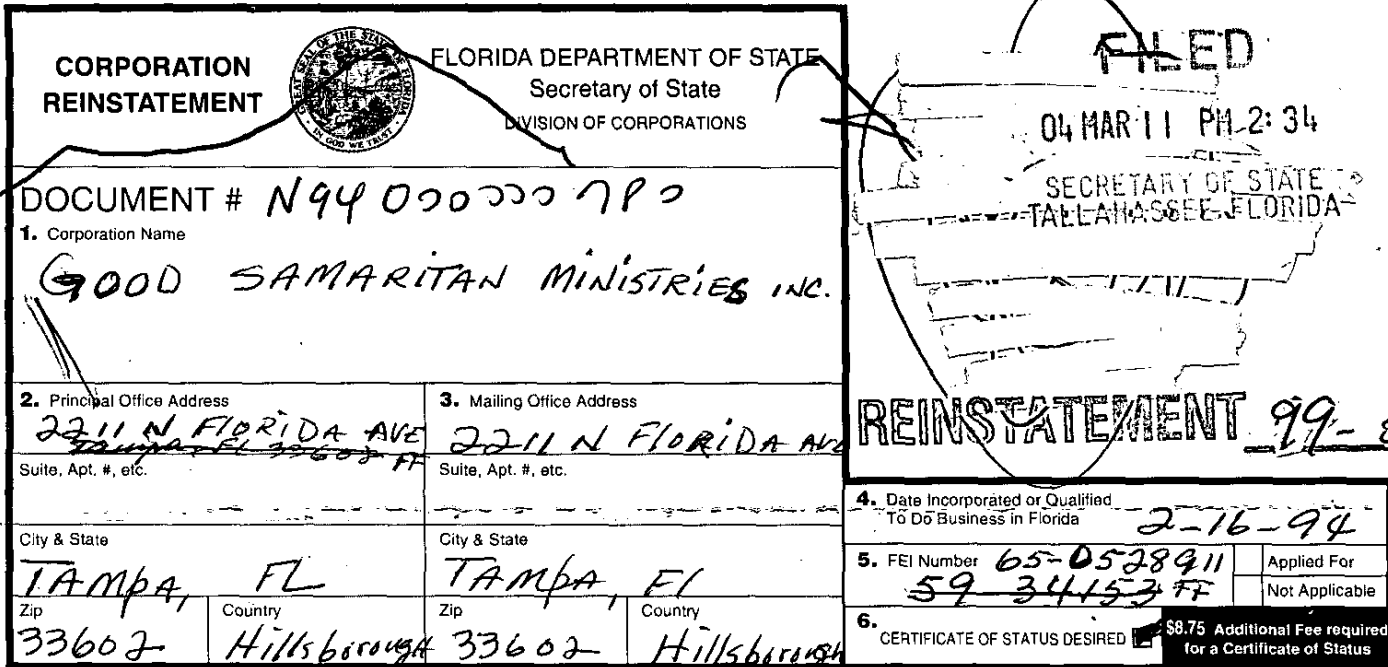 CORPORATION
REINSTATEMENT
GREAT SEAL OF THE STATE OF FLORIDA
IN GOD WE TRUST
FLORIDA DEPARTMENT OF STATE
Secretary of State
DIVISION OF CORPORATIONS
FILED
04 MAR 11 PM 2:34
SECRETARY OF STATE
TALLAHASSEE, FLORIDA
REINSTATEMENT 99-
DOCUMENT # N94000000780
1. Corporation Name
GOOD SAMARITAN MINISTRIES INC.
2. Principal Office Address
2211 N FLORIDA AVE
Tampa FL 33602 FF
Suite, Apt. #, etc.
City & State
TAMPA, FL
Zip
33602
Country
Hillsborough
3. Mailing Office Address
2211 N FLORIDA AVE
Suite, Apt. #, etc.
City & State
TAMPA, Fl
Zip
33602
Country
Hillsborough
4. Date Incorporated or Qualified
To Do Business in Florida
2-16-94
5. FEI Number 65-0528911
59 34153 FF
Applied For
Not Applicable
6. CERTIFICATE OF STATUS DESIRED
$8.75 Additional Fee required
for a Certificate of Status